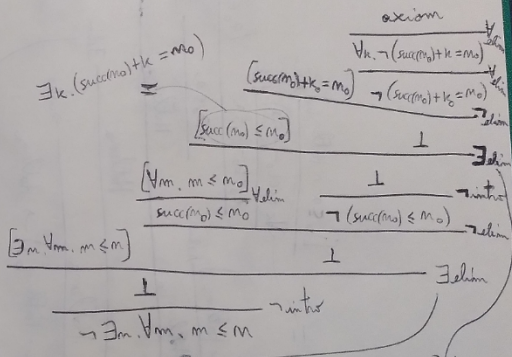 axiom
∀elim
∀k. ¬(succ(m₀)+k = m₀)
∀elim
∃k. (succ(m₀)+k = m₀)
[succ(m₀)+k₀ = m₀]
¬(succ(m₀)+k₀ = m₀)
¬elim
=
[succ(m₀) ≤ m₀]
⊥
∃elim
[∀m. m ≤ m₀]
∀elim
⊥
¬intro
succ(m₀) ≤ m₀
¬(succ(m₀) ≤ m₀)
¬elim
[∃n. ∀m. m ≤ n]
⊥
∃elim
⊥
¬intro
¬∃n. ∀m. m ≤ n